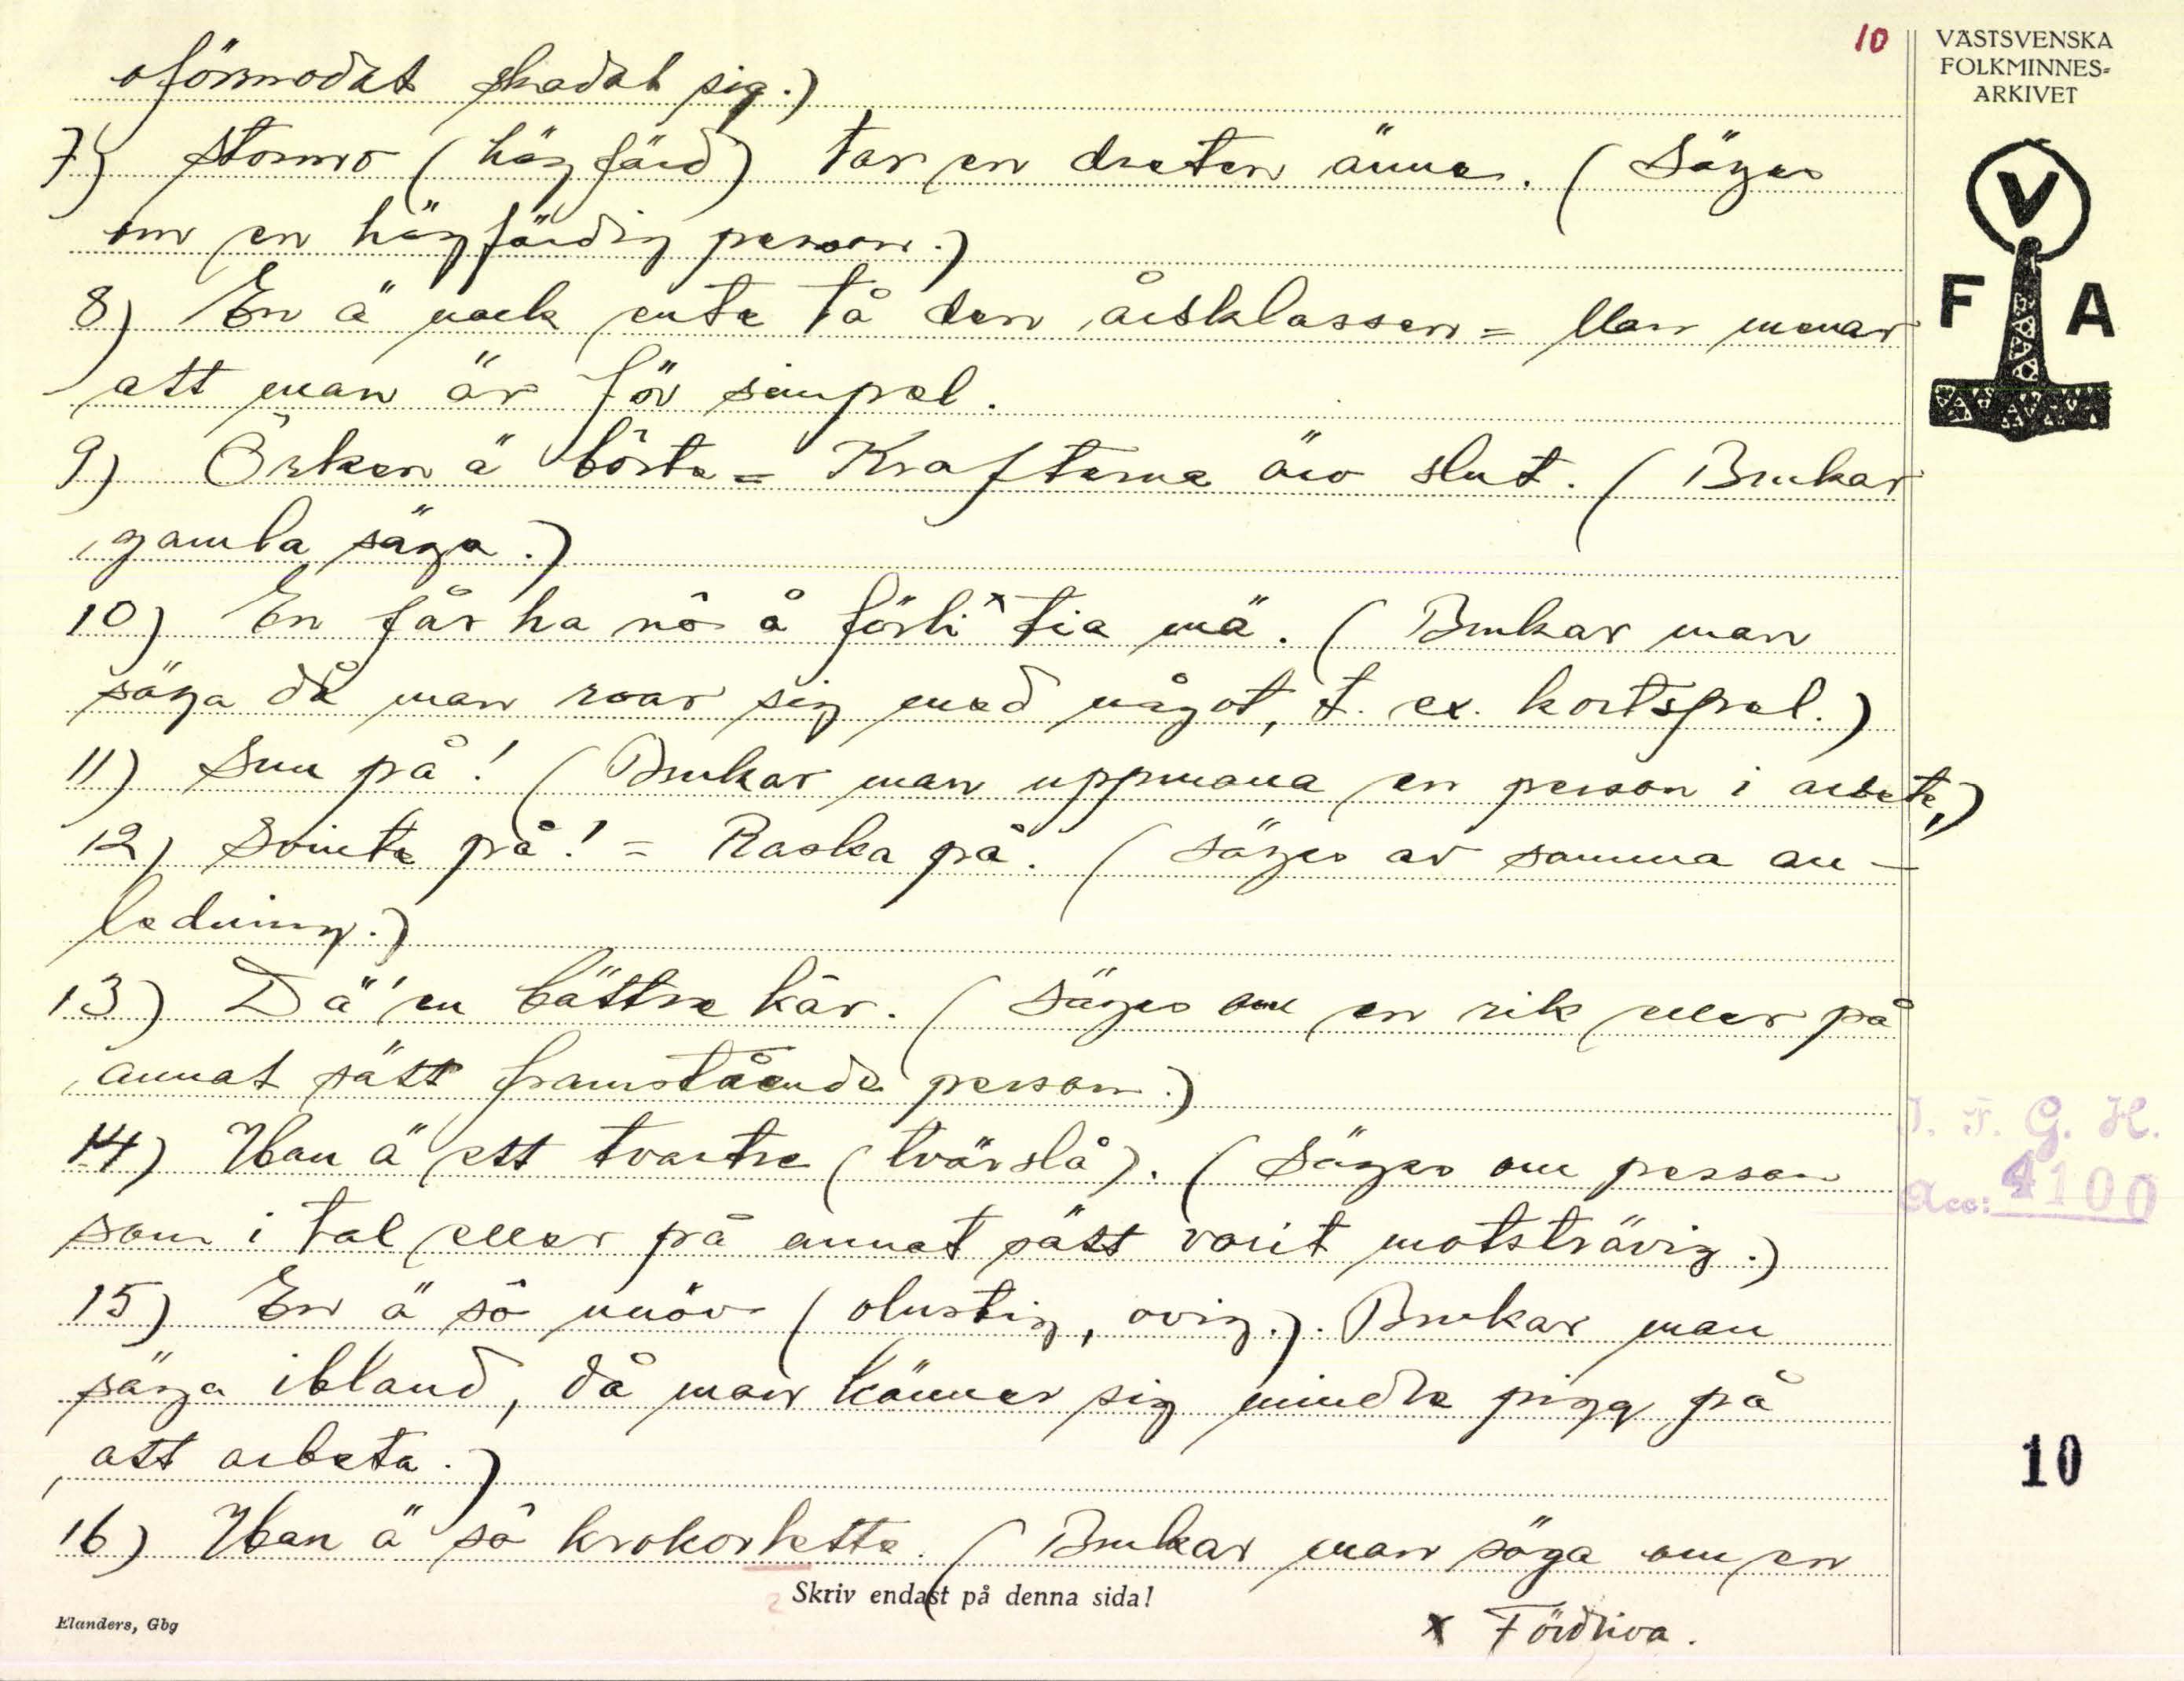 10
VÄSTSVENSKA
FOLKMINNES-
ARKIVET
V
F A
oförmodat skadat sig.)
7) Stormo (högfärd) tar en dreten änna. (Säges
om en högfärdig person.)
8) En ä nock ente tå den årsklassen = Man menar
att man är för simpel.
9) Orken ä börta = Krafterna äro slut. (Brukar
gamla säga.)
10) En får ha nô å förli x tia mä. (Brukar man
säga då man roar sig med något, t. ex. kortspel.)
11) Snu på! (Brukar man uppmana en person i arbete,)
12) Svinta på! = Raska på. (Säges av samma an-
ledning.)
13) Dä'en bättre kär. (Säges om en rik eller på
annat sätt framstående person.)
14) Han ä ett tvartre (tvärslå). (Säges om person
som i tal eller på annat sätt varit motsträvig.)
15) En ä sô unöv (olustig, ovig.). Brukar man
säga ibland, då man känner sig mindre pigg på
att arbeta.)
16) Han ä sô krokorkette. (Brukar man säga om en
x Fördriva.
Skriv endast på denna sida!
Elanders, Gbg
I. F. G. H.
Acc: 4100
10